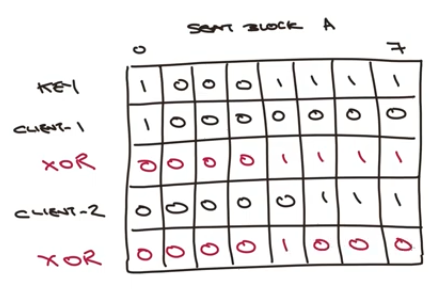 SEAT BLOCK A
0 7
KEY 1 0 0 0 1 1 1 1
CLIENT-1 1 0 0 0 0 0 0 0
XOR 0 0 0 0 1 1 1 1
CLIENT-2 0 0 0 0 0 1 1 1
XOR 0 0 0 0 1 0 0 0